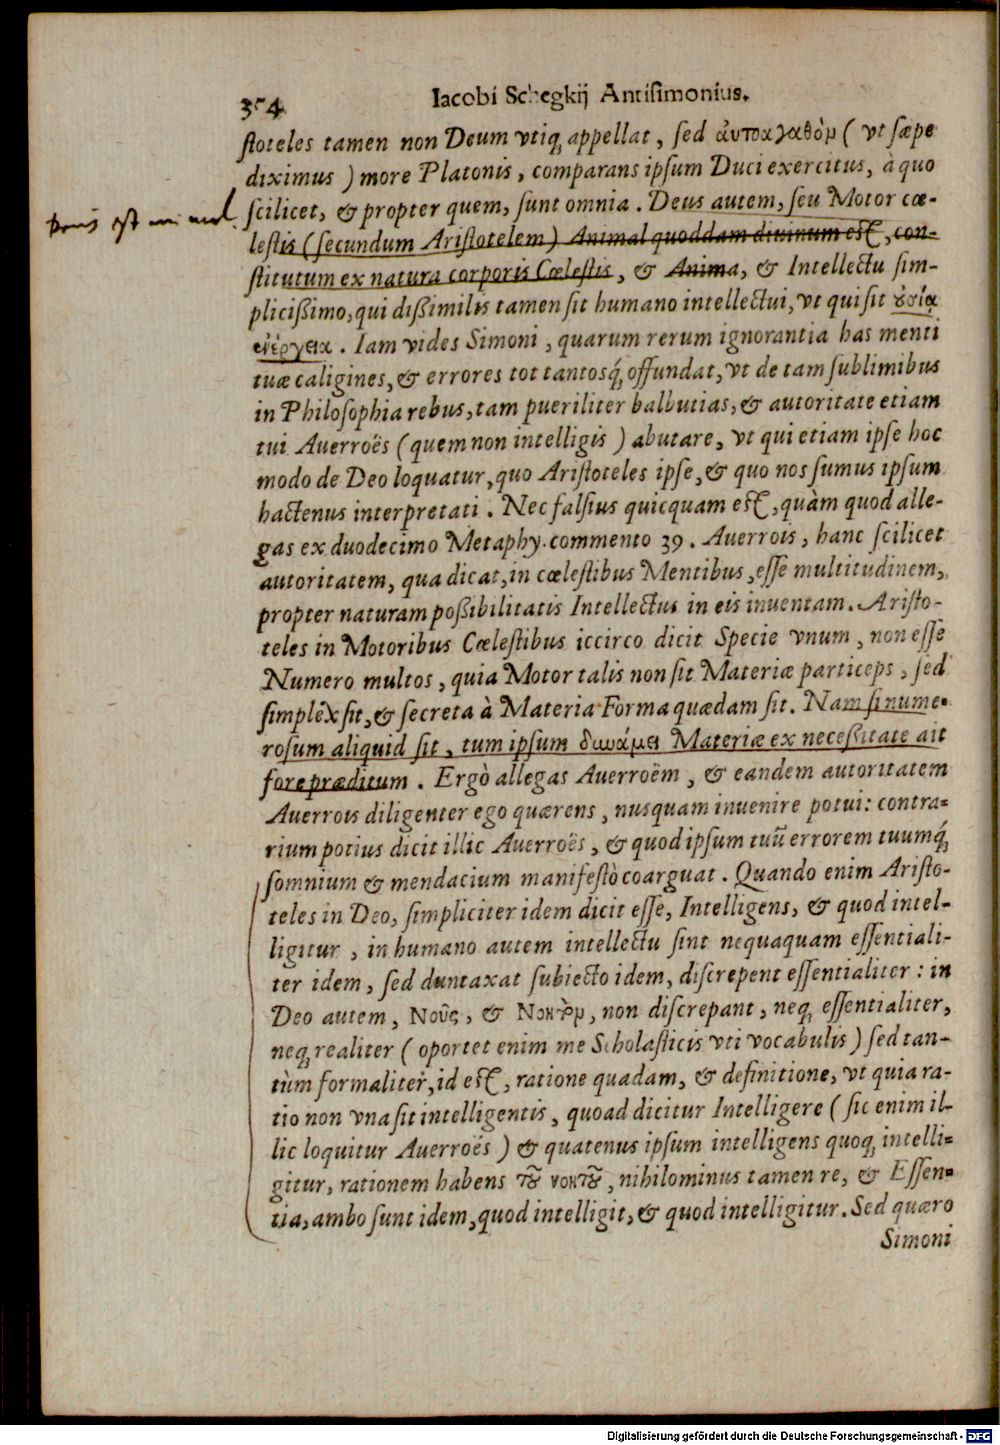 354
Iacobi Schegkij Antisimonius.
stoteles tamen non Deum vtiq; appellat, sed ἀυτοαγαθὸν (vt sæpe
diximus) more Platonis, comparans ipsum Duci exercitus, à quo
scilicet, & propter quem, sunt omnia. Deus autem, seu Motor cœ-
lestis (secundum Aristotelem) Animal quoddam diuinum est, con-
stitutum ex natura corporis Cœlestis, & Anima, & Intellectu sim-
plicißimo, qui dißimilis tamen sit humano intellectui, vt qui sit ȣ̓σία
ἐνέργεια. Iam vides Simoni, quarum rerum ignorantia has menti
tuæ caligines, & errores tot tantosq́; offundat, vt de tam sublimibus
in Philosophia rebus, tam pueriliter balbutias, & autoritate etiam
tui Auerroës (quem non intelligis) abutare, vt qui etiam ipse hoc
modo de Deo loquatur, quo Aristoteles ipse, & quo nos sumus ipsum
hactenus interpretati. Nec falsius quicquam est, quàm quod alle-
gas ex duodecimo Metaphy. commento 39. Auerrois, hanc scilicet
autoritatem, qua dicat, in cœlestibus Mentibus, esse multitudinem,
propter naturam poßibilitatis Intellectus in eis inuentam. Aristo-
teles in Motoribus Cœlestibus iccirco dicit Specie vnum, non esse
Numero multos, quia Motor talis non sit Materiæ particeps, sed
simplex sit, & secreta à Materia Forma quædam sit. Nam si nume-
rosum aliquid sit, tum ipsum δυνάμει Materiæ ex neceßitate ait
fore præditum. Ergò allegas Auerroëm, & eandem autoritatem
Auerrois diligenter ego quærens, nusquam inuenire potui: contra-
rium potius dicit illic Auerroës, & quod ipsum tuū errorem tuumq́;
somnium & mendacium manifestò coarguat. Quando enim Aristo-
teles in Deo, simpliciter idem dicit esse, Intelligens, & quod intel-
ligitur, in humano autem intellectu sint nequaquam essentiali-
ter idem, sed duntaxat subiecto idem, discrepent essentialiter: in
Deo autem, Νοῦς, & Νοητὸν, non discrepant, neq; essentialiter,
neq; realiter (oportet enim me Scholasticis vti vocabulis) sed tan-
tùm formaliter, id est, ratione quadam, & definitione, vt quia ra-
tio non vna sit intelligentis, quoad dicitur Intelligere (sic enim il-
lic loquitur Auerroës) & quatenus ipsum intelligens quoq; intelli-
gitur, rationem habens τȣ͂ νοητȣ͂, nihilominus tamen re, & Essen-
tia, ambo sunt idem, quod intelligit, & quod intelligitur. Sed quæro
Simoni
Digitalisierung gefördert durch die Deutsche Forschungsgemeinschaft - DFG